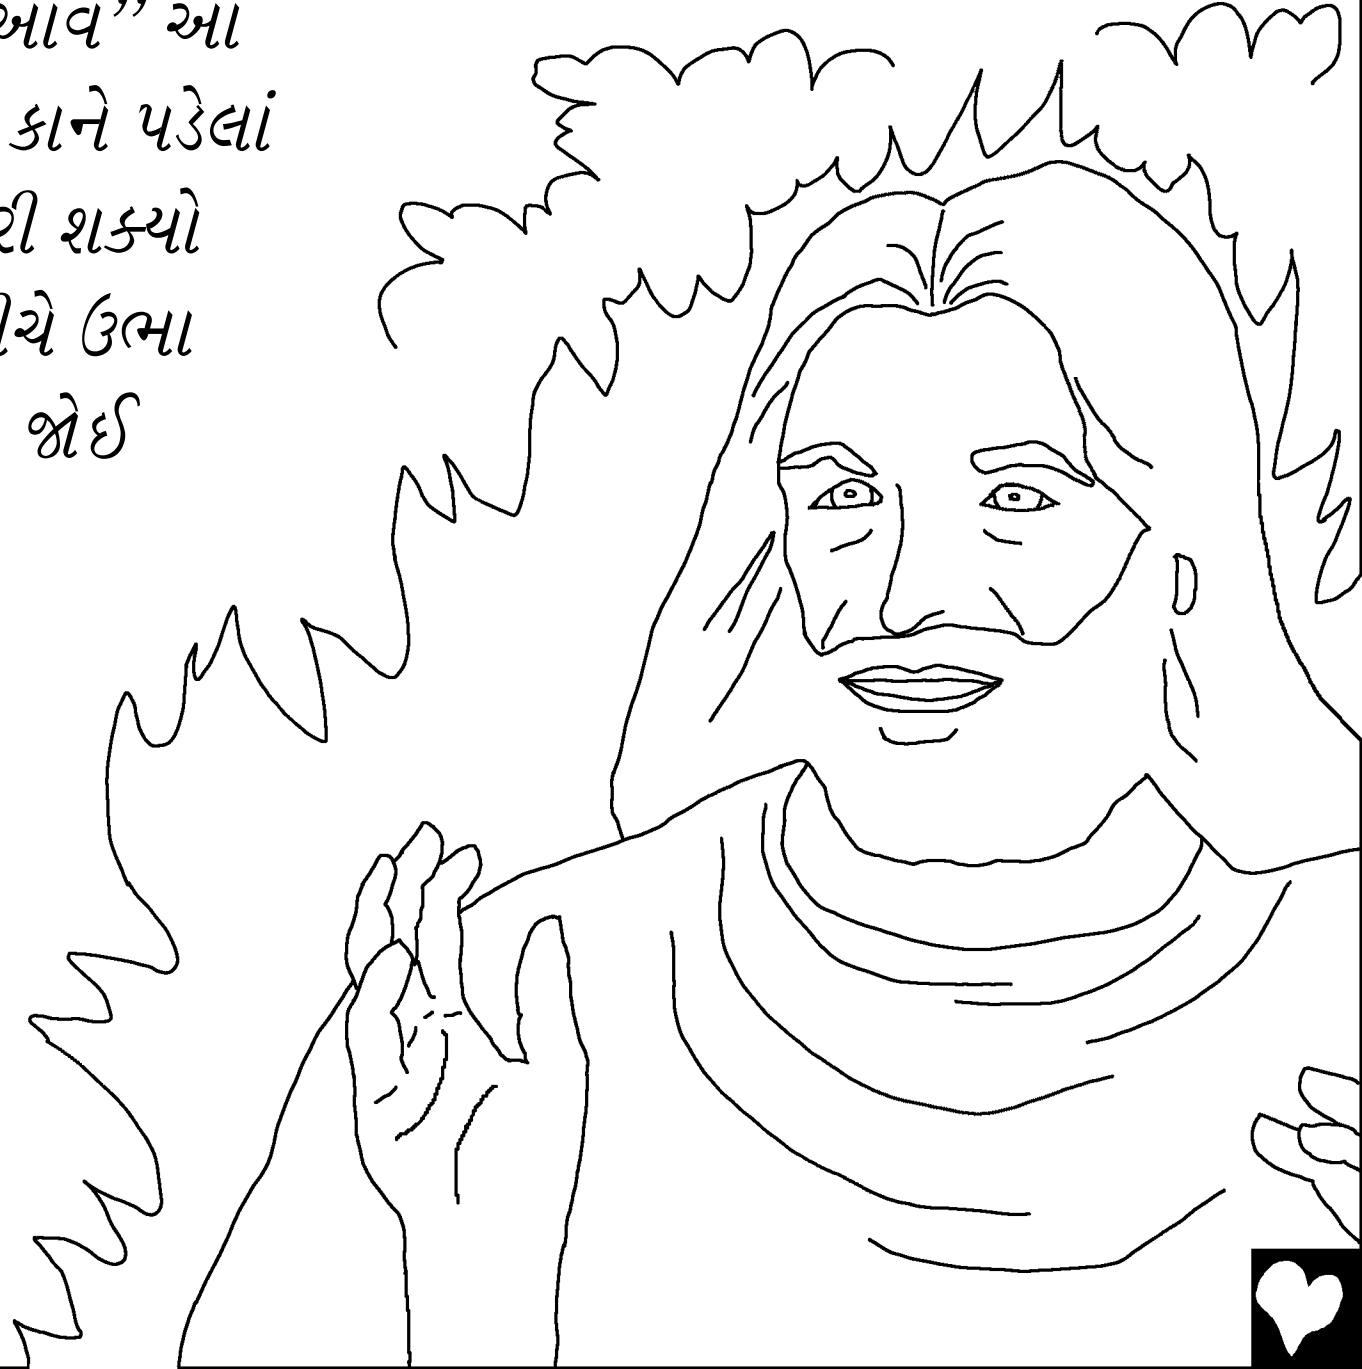 આવ” આ
કાને પડેલાં
રી શક્યો
ીચે ઉભા
જોઈ